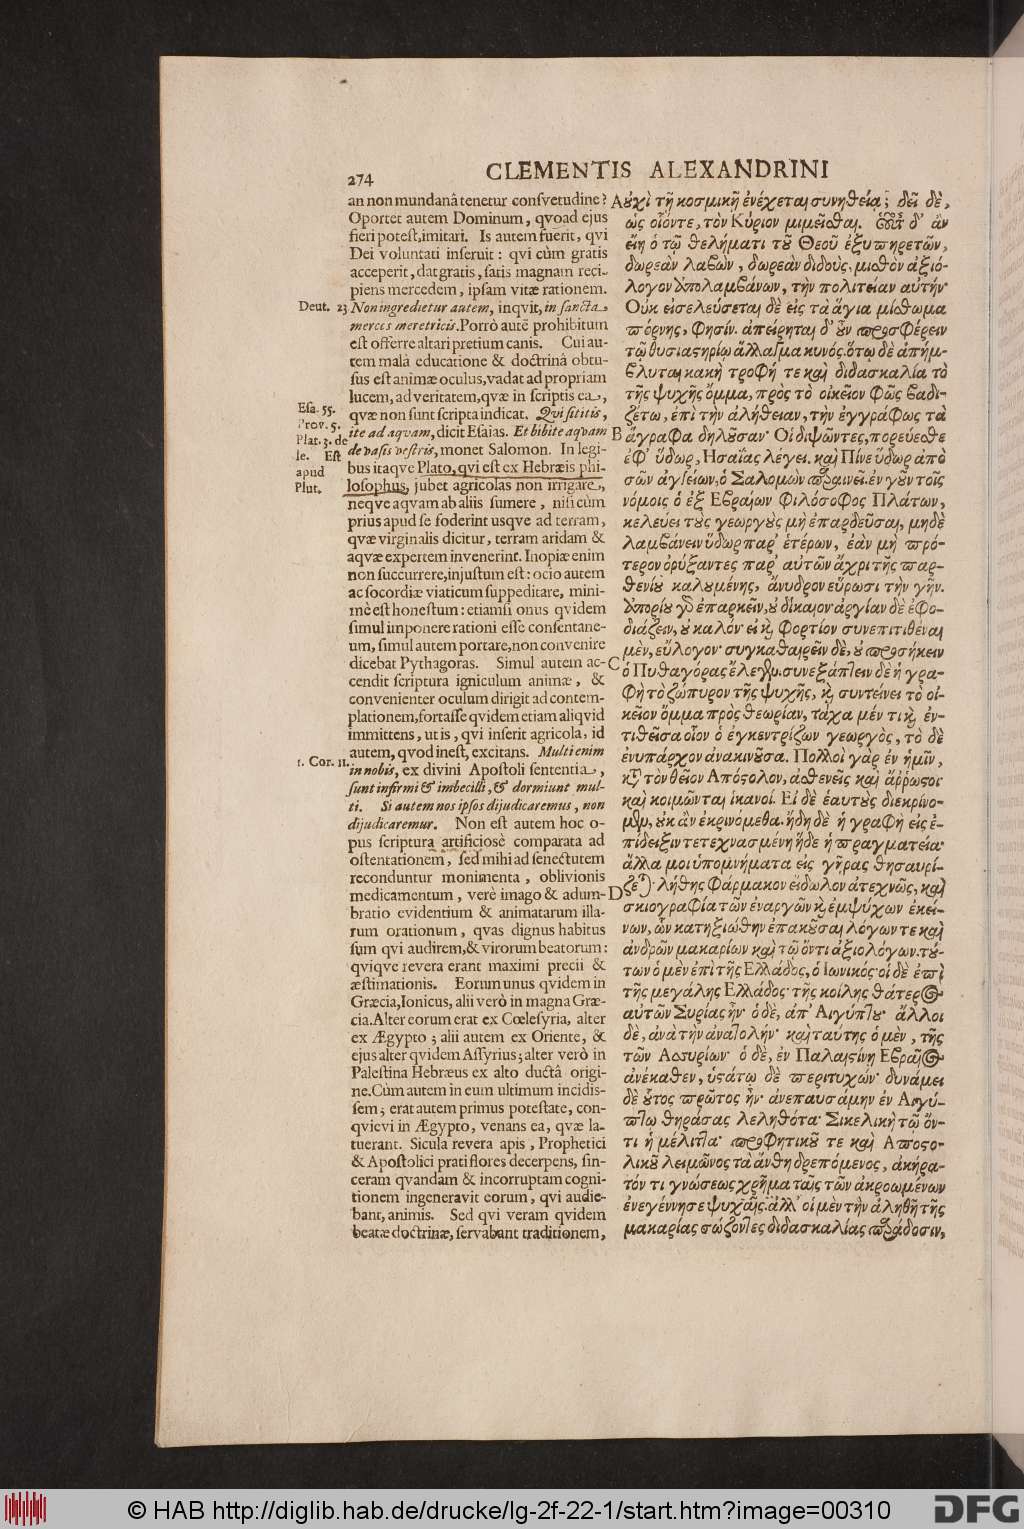 274
CLEMENTIS ALEXANDRINI
an non mundanâ tenetur consvetudine?
Oportet autem Dominum, qvoad ejus
fieri potest, imitari. Is autem fuerit, qvi
Dei voluntati inseruit: qvi cùm gratis
acceperit, dat gratis, satis magnam reci-
piens mercedem, ipsam vitæ rationem.
Non ingredietur autem, inqvit, in sancta
merces meretricis. Porrò autē prohibitum
est offerre altari pretium canis. Cui au-
tem malâ educatione & doctrinâ obtu-
sus est animæ oculus, vadat ad propriam
lucem, ad veritatem, qvæ in scriptis ea,
qvæ non sunt scripta indicat. Qvi sititis,
ite ad aqvam, dicit Esaias. Et bibite aqvam
de vasis vestris, monet Salomon. In legi-
bus itaqve Plato, qvi est ex Hebræis phi-
losophus, jubet agricolas non irrigare,
neqve aqvam ab aliis sumere, nisi cùm
prius apud se foderint usqve ad terram,
qvæ virginalis dicitur, terram aridam &
aqvæ expertem invenerint. Inopiæ enim
non succurrere, injustum est: ocio autem
ac socordiæ viaticum suppeditare, mini-
mè est honestum: etiamsi onus qvidem
simul imponere rationi esse consentane-
um, simul autem portare, non convenire
dicebat Pythagoras. Simul autem ac-
cendit scriptura igniculum animæ, &
convenienter oculum dirigit ad contem-
plationem, fortasse qvidem etiam aliqvid
immittens, ut is, qvi inserit agricola, id
autem, qvod inest, excitans. Multi enim
in nobis, ex divini Apostoli sententia,
sunt infirmi & imbecilli, & dormiunt mul-
ti. Si autem nos ipsos dijudicaremus, non
dijudicaremur. Non est autem hoc o-
pus scriptura artificiosè comparata ad
ostentationem, sed mihi ad senectutem
reconduntur monimenta, oblivionis
medicamentum, verè imago & adum-
bratio evidentium & animatarum illa-
rum orationum, qvas dignus habitus
sum qvi audirem, & virorum beatorum:
qviqve revera erant maximi precii &
æstimationis. Eorum unus qvidem in
Græcia, Ionicus, alii verò in magna Græ-
cia. Alter eorum erat ex Cœlesyria, alter
ex Ægypto; alii autem ex Oriente, &
ejus alter qvidem Assyrius; alter verò in
Palestina Hebræus ex alto ductâ origi-
ne. Cùm autem in eum ultimum incidis-
sem; erat autem primus potestate, con-
qvievi in Ægypto, venans ea, qvæ la-
tuerant. Sicula revera apis, Prophetici
& Apostolici prati flores decerpens, sin-
ceram qvandam & incorruptam cogni-
tionem ingeneravit eorum, qvi audie-
bant, animis. Sed qvi veram qvidem
beatæ doctrinæ, servabant traditionem,
Deut. 23
Esa. 55.
Prov. 5.
Plat. 3. de
le. Est
apud
Plut.
1. Cor. 11.
A
B
C
D
οὐχὶ τῇ κοσμικῇ ἐνέχεται συνηθείᾳ; δεῖ δὲ,
ὡς οἷόντε, τὸν Κύριον μιμεῖσθαι. οὗτος δ' ἂν
εἴη ὁ τῷ θελήματι τοῦ Θεοῦ ἐξυπηρετῶν,
δωρεὰν λαβὼν, δωρεὰν διδοὺς, μισθὸν ἀξιό-
λογον ἀπολαμβάνων, τὴν πολιτείαν αὐτήν·
Οὐκ εἰσελεύσεται δὲ εἰς τὰ ἅγια μίσθωμα
πόρνης, φησίν. ἀπείρηται δ' οὖν προσφέρειν
τῷ θυσιαστηρίῳ ἄλλαγμα κυνός. ὅτῳ δὲ ἀπήμ-
βλυται κακὴ τροφή τε καὶ διδασκαλία τὸ
τῆς ψυχῆς ὄμμα, πρὸς τὸ οἰκεῖον φῶς βαδι-
ζέτω, ἐπὶ τὴν ἀλήθειαν, τὴν ἐγγράφως τὰ
ἄγραφα δηλοῦσαν· Οἱ διψῶντες, πορεύεσθε
ἐφ' ὕδωρ, Ησαΐας λέγει. καὶ Πίνε ὕδωρ ἀπὸ
σῶν ἀγγείων, ὁ Σαλομὼν παραινεῖ. ἐν γοῦν τοῖς
νόμοις ὁ ἐξ Εβραίων φιλόσοφος Πλάτων,
κελεύει τοὺς γεωργοὺς μὴ ἐπαρδεῦσαι, μηδὲ
λαμβάνειν ὕδωρ παρ' ἑτέρων, ἐὰν μὴ πρό-
τερον ὀρύξαντες παρ' αὐτῶν ἄχρι τῆς παρ-
θενίου καλουμένης, ἄνυδρον εὕρωσι τὴν γῆν.
ἀπορίᾳ γὰρ ἐπαρκεῖν, οὐ δίκαιον ἀργίαν δὲ ἐφο-
διάζειν, οὐ καλόν· εἰ καὶ φορτίον συνεπιτιθέναι
μὲν, εὔλογον· συγκαθαιρεῖν δὲ, οὐ προσήκειν
ὁ Πυθαγόρας ἔλεγεν. συνεξάπτειν δὲ ἡ γρα-
φὴ τὸ ζώπυρον τῆς ψυχῆς, καὶ συντείνει τὸ οἰ-
κεῖον ὄμμα πρὸς θεωρίαν, τάχα μέν τι καὶ ἐν-
τιθεῖσα οἷον ὁ ἐγκεντρίζων γεωργὸς, τὸ δὲ
ἐνυπάρχον ἀνακινοῦσα. Πολλοὶ γὰρ ἐν ἡμῖν,
κατὰ τὸν θεῖον Απόστολον, ἀσθενεῖς καὶ ἄῤῥωστοι
καὶ κοιμῶνται ἱκανοί. Εἰ δὲ ἑαυτοὺς διεκρίνο-
μεν, οὐκ ἂν ἐκρινόμεθα. ἤδη δὲ ἡ γραφὴ εἰς ἐ-
πίδειξιν τετεχνασμένη ἥδε ἡ πραγματεία·
ἀλλά μοι ὑπομνήματα εἰς γῆρας θησαυρί-
ζεται· λήθης φάρμακον εἴδωλον ἀτεχνῶς, καὶ
σκιογραφία τῶν ἐναργῶν καὶ ἐμψύχων ἐκεί-
νων, ὧν κατηξιώθην ἐπακοῦσαι λόγων τε καὶ
ἀνδρῶν μακαρίων καὶ τῷ ὄντι ἀξιολόγων. τού-
των ὁ μὲν ἐπὶ τῆς Ελλάδος, ὁ Ιωνικός· οἱ δὲ ἐπὶ
τῆς μεγάλης Ελλάδος· τῆς κοίλης θάτερος
αὐτῶν Συρίας ἦν· ὁ δὲ, ἀπ' Αἰγύπτου· ἄλλοι
δὲ, ἀνὰ τὴν ἀνατολήν· καὶ ταύτης ὁ μὲν, τῆς
τῶν Ασσυρίων· ὁ δὲ, ἐν Παλαιστίνῃ Εβραῖος
ἀνέκαθεν, ὑστάτῳ δὲ περιτυχών· δυνάμει
δὲ οὗτος πρῶτος ἦν· ἀνεπαυσάμην ἐν Αἰγύ-
πτῳ θηράσας λεληθότα· Σικελικὴ τῷ ὄν-
τι ἡ μέλιττα· προφητικοῦ τε καὶ Αποστο-
λικοῦ λειμῶνος τὰ ἄνθη δρεπόμενος, ἀκήρα-
τόν τι γνώσεως χρῆμα ταῖς τῶν ἀκροωμένων
ἐνεγέννησε ψυχαῖς. ἀλλ' οἱ μὲν τὴν ἀληθῆ τῆς
μακαρίας σώζοντες διδασκαλίας παράδοσιν,
© HAB http://diglib.hab.de/drucke/lg-2f-22-1/start.htm?image=00310
DFG